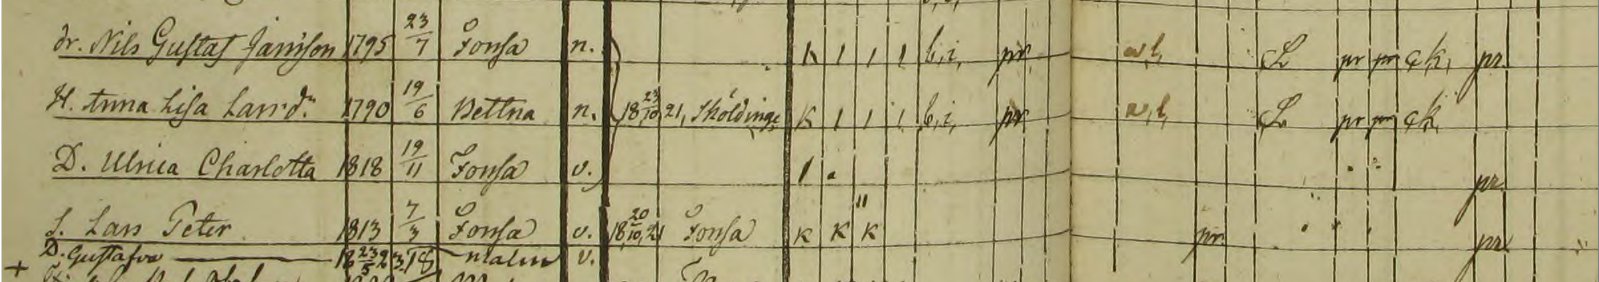 dr. Nils Gustaf Jansson 1795 23/7 Forssa n. K 1 1 1 b,i, pr. w,l, L pr pr çk, pr.
H. Anna Lisa Larsdr 1790 19/6 Bettna n. 18 23/10 21, Sköldinge K 1 1 1 b,i, pr w,l, L pr pr çk,
D. Ulrica Charlotta 1818 19/11 Forssa v. 1 pr.
S. Lars Peter 1813 7/3 Forssa v. 18 20/10 21 Forssa K K K pr pr
D. Gustafva v.